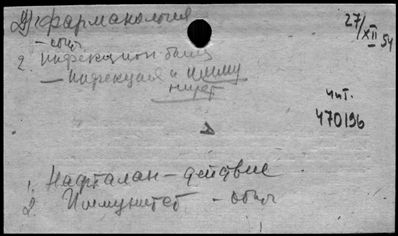 фармакология
27/XII – 54
– общ
2. инфекцион. бол.
– инфекция и имму
нитет
чит.
470196
1. Нафталан – действие
2. Иммунитет – общ